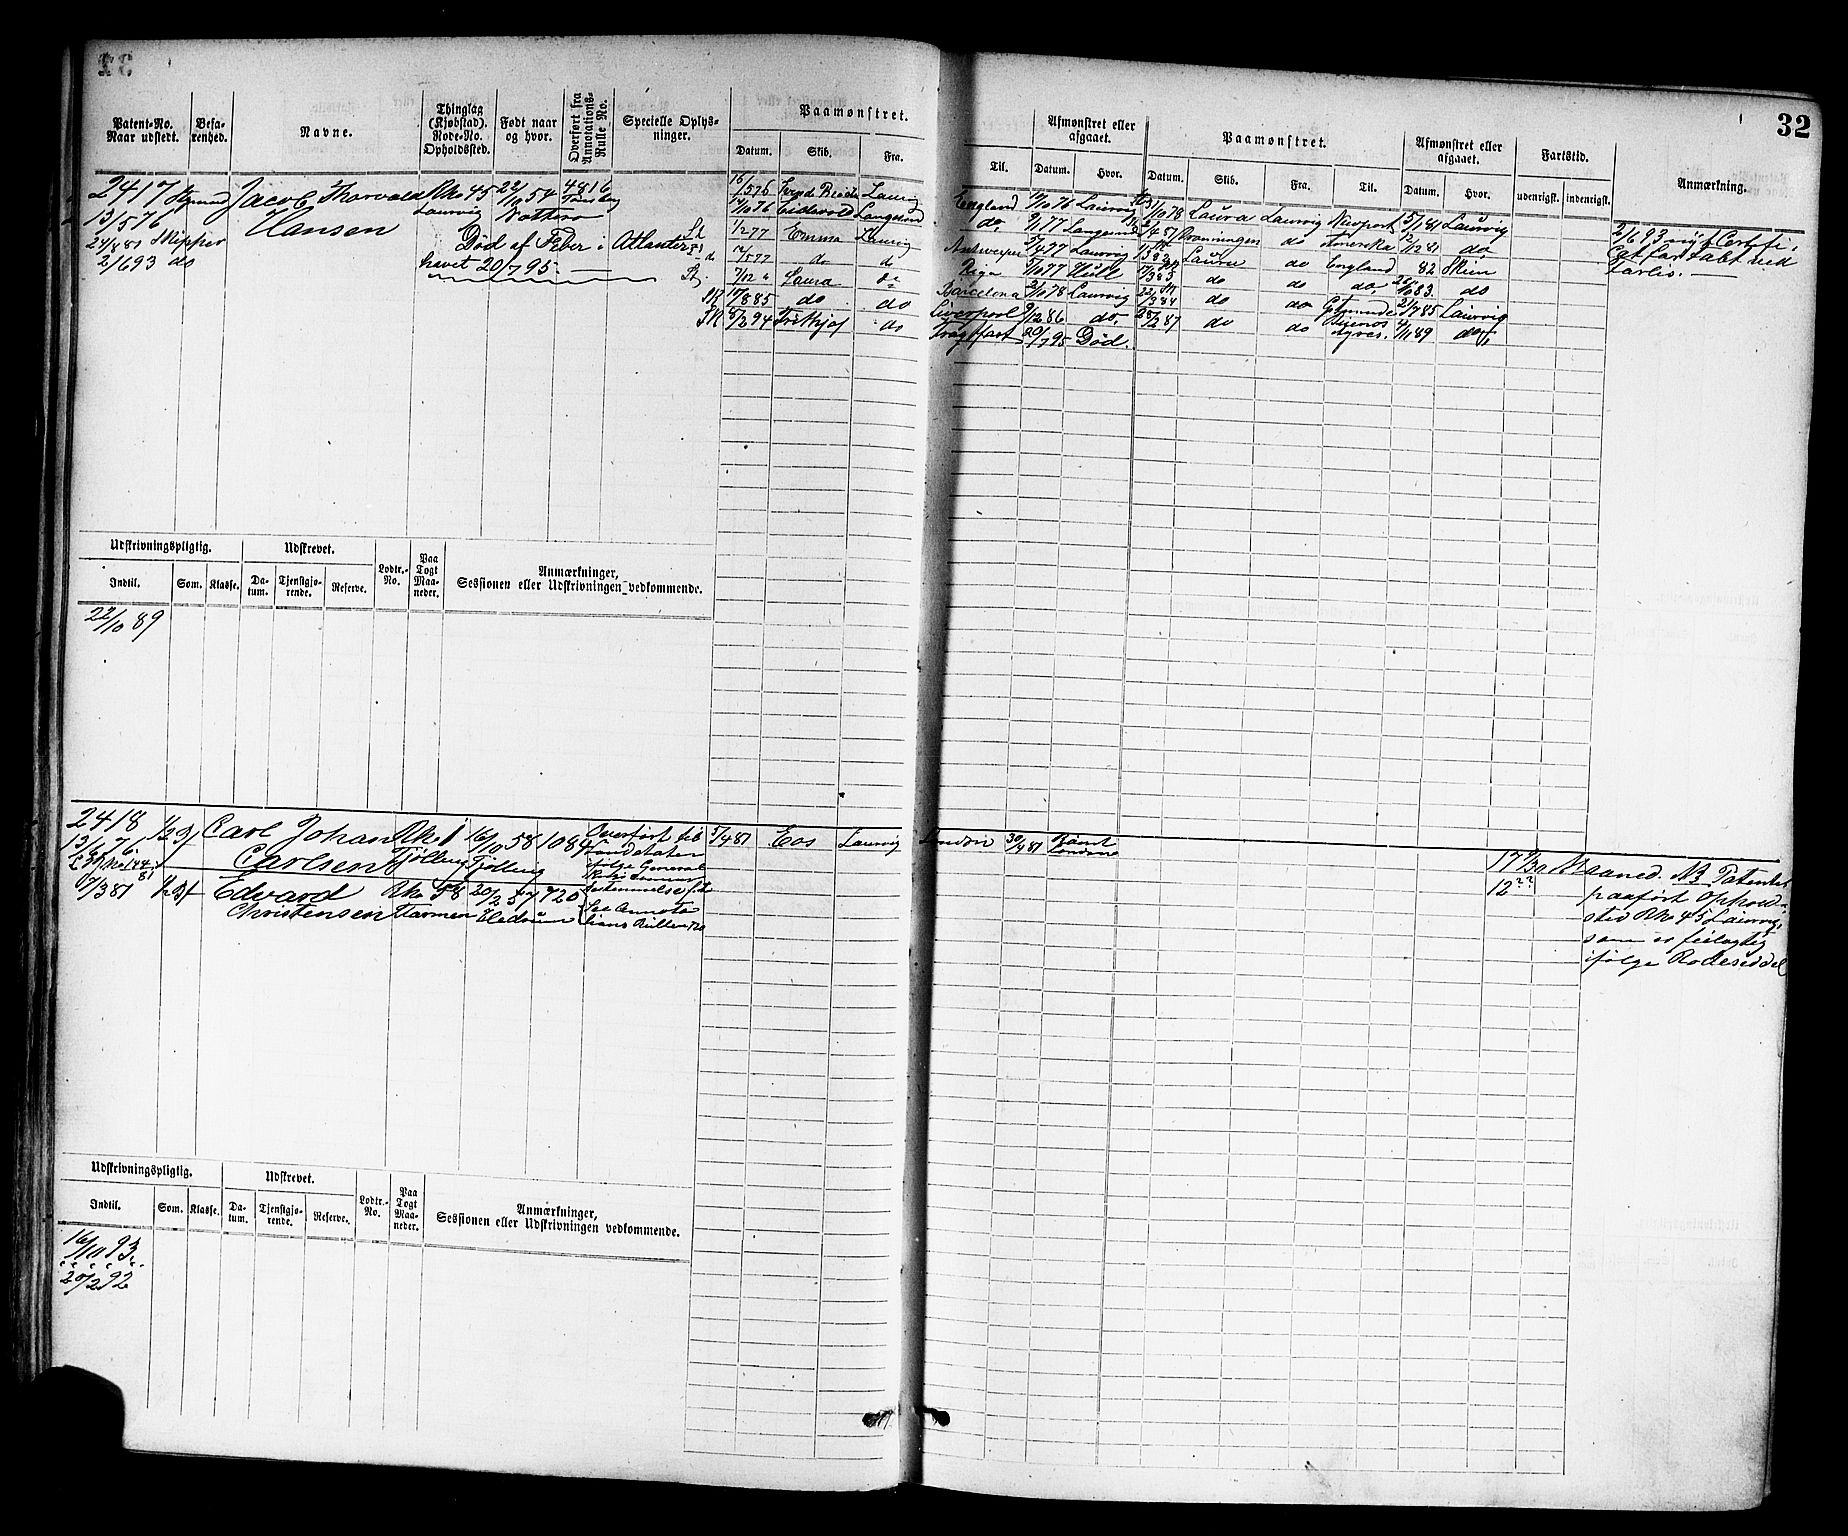 32
Patent-No. Naar udstedt.
Befarenhed.
Navne.
Thinglag (Kjøbstad). Rode-No. Opholdssted.
Født naar og hvor.
Overført fra Annotations-Rulle No.
Specielle Oplysninger.
Paamønstret.
Datum. Skib. Fra. Til.
Afmønstret eller afgaaet.
Datum. Hvor.
Paamønstret.
Datum. Skib. Fra. Til.
Afmønstret eller afgaaet.
Datum. Hvor.
Fartstid.
udenrigsk. indenrigsk.
Anmærkning.
2417
13/5 76
24/8 81 Skipper
2/6 93 do
Jacob Thorvald
Hansen
Rno 45
Laurvig
22/10 54
4816
Tønsberg
Død af Feber i Atlanter
havet 20/7 95.
16/5 76 Laurvig England 14/10 76 Laurvig
14/10 76 Eidsvold Langesund do. 9/1 77 Langesund
1/2 77 Emma Laurvig Antwerpen 3/4 77 Laurvig
17/5 77 do do Riga 5/10 77 Hull
7/12 " Laura do Barcelona 3/10 78 Laurvig
17/8 85 do do Liverpool 9/12 86 do.
5/2 94 Fritkjof do Fragtfart 20/7 95 Død.
10 78 Laura Laurvig Newport 5/1 81 Laurvig
do Amerika 2/12 81 do
Laura do England 82 Skien
7/3 83 do do do. 10 83. do
22/3 84 do do 21/7 85 Laurvig
25/2 87 do do Buenos Ayres. 4/11 89 do
2/6 93 nyt Certifi-
cat før tabt ved
forlis.
Udskrivningspligtig.
Indtil. Som. Klasse.
Udskrevet.
Datum. Tjenstgjørende. Reserve.
Lodtr.-No.
Paa Togt Maaneder.
Anmærkninger,
Sessionen eller Udskrivningen vedkommende.
22/10 89
2418
13/6 76.
Carl Johan
Carlsen
Rno 1
Tjølling
16/10 58
Tjølling
1084
Overført til
Landetaten
ifølge General
5/4 81 Eos Laurvig London 30/4 81 Rømt London
17/3 81
Edward
Christensen
Rno 58
20/2 57
Hedrum
720
See Annota
tions Rullen 720
Maaned. NB Patentet
paaført Ophold-
sted Rno 45 Laurvig,
som er feilagtig
ifølge Rodeseddel
Udskrivningspligtig.
Indtil. Som. Klasse.
Udskrevet.
Datum. Tjenstgjørende. Reserve.
Lodtr.-No.
Paa Togt Maaneder.
Anmærkninger,
Sessionen eller Udskrivningen vedkommende.
16/10 93.
20/2 92